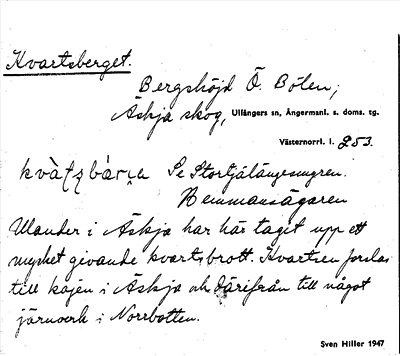 Kvartsberget.
Bergshöjd Ö. Bölen;
Äskja skog, Ullångers sn, Ångermanl. s. doms. tg.
Västernorrl. l. 253.
Se Stortjälängesmyren.
Hemmansägaren
Ulander i Äskja har här taget upp ett
mycket givande kvartsbrott. Kvartsen forslas
till kajen i Äskja och därifrån till något
järnverk i Norrbotten.
Sven Hiller 1947